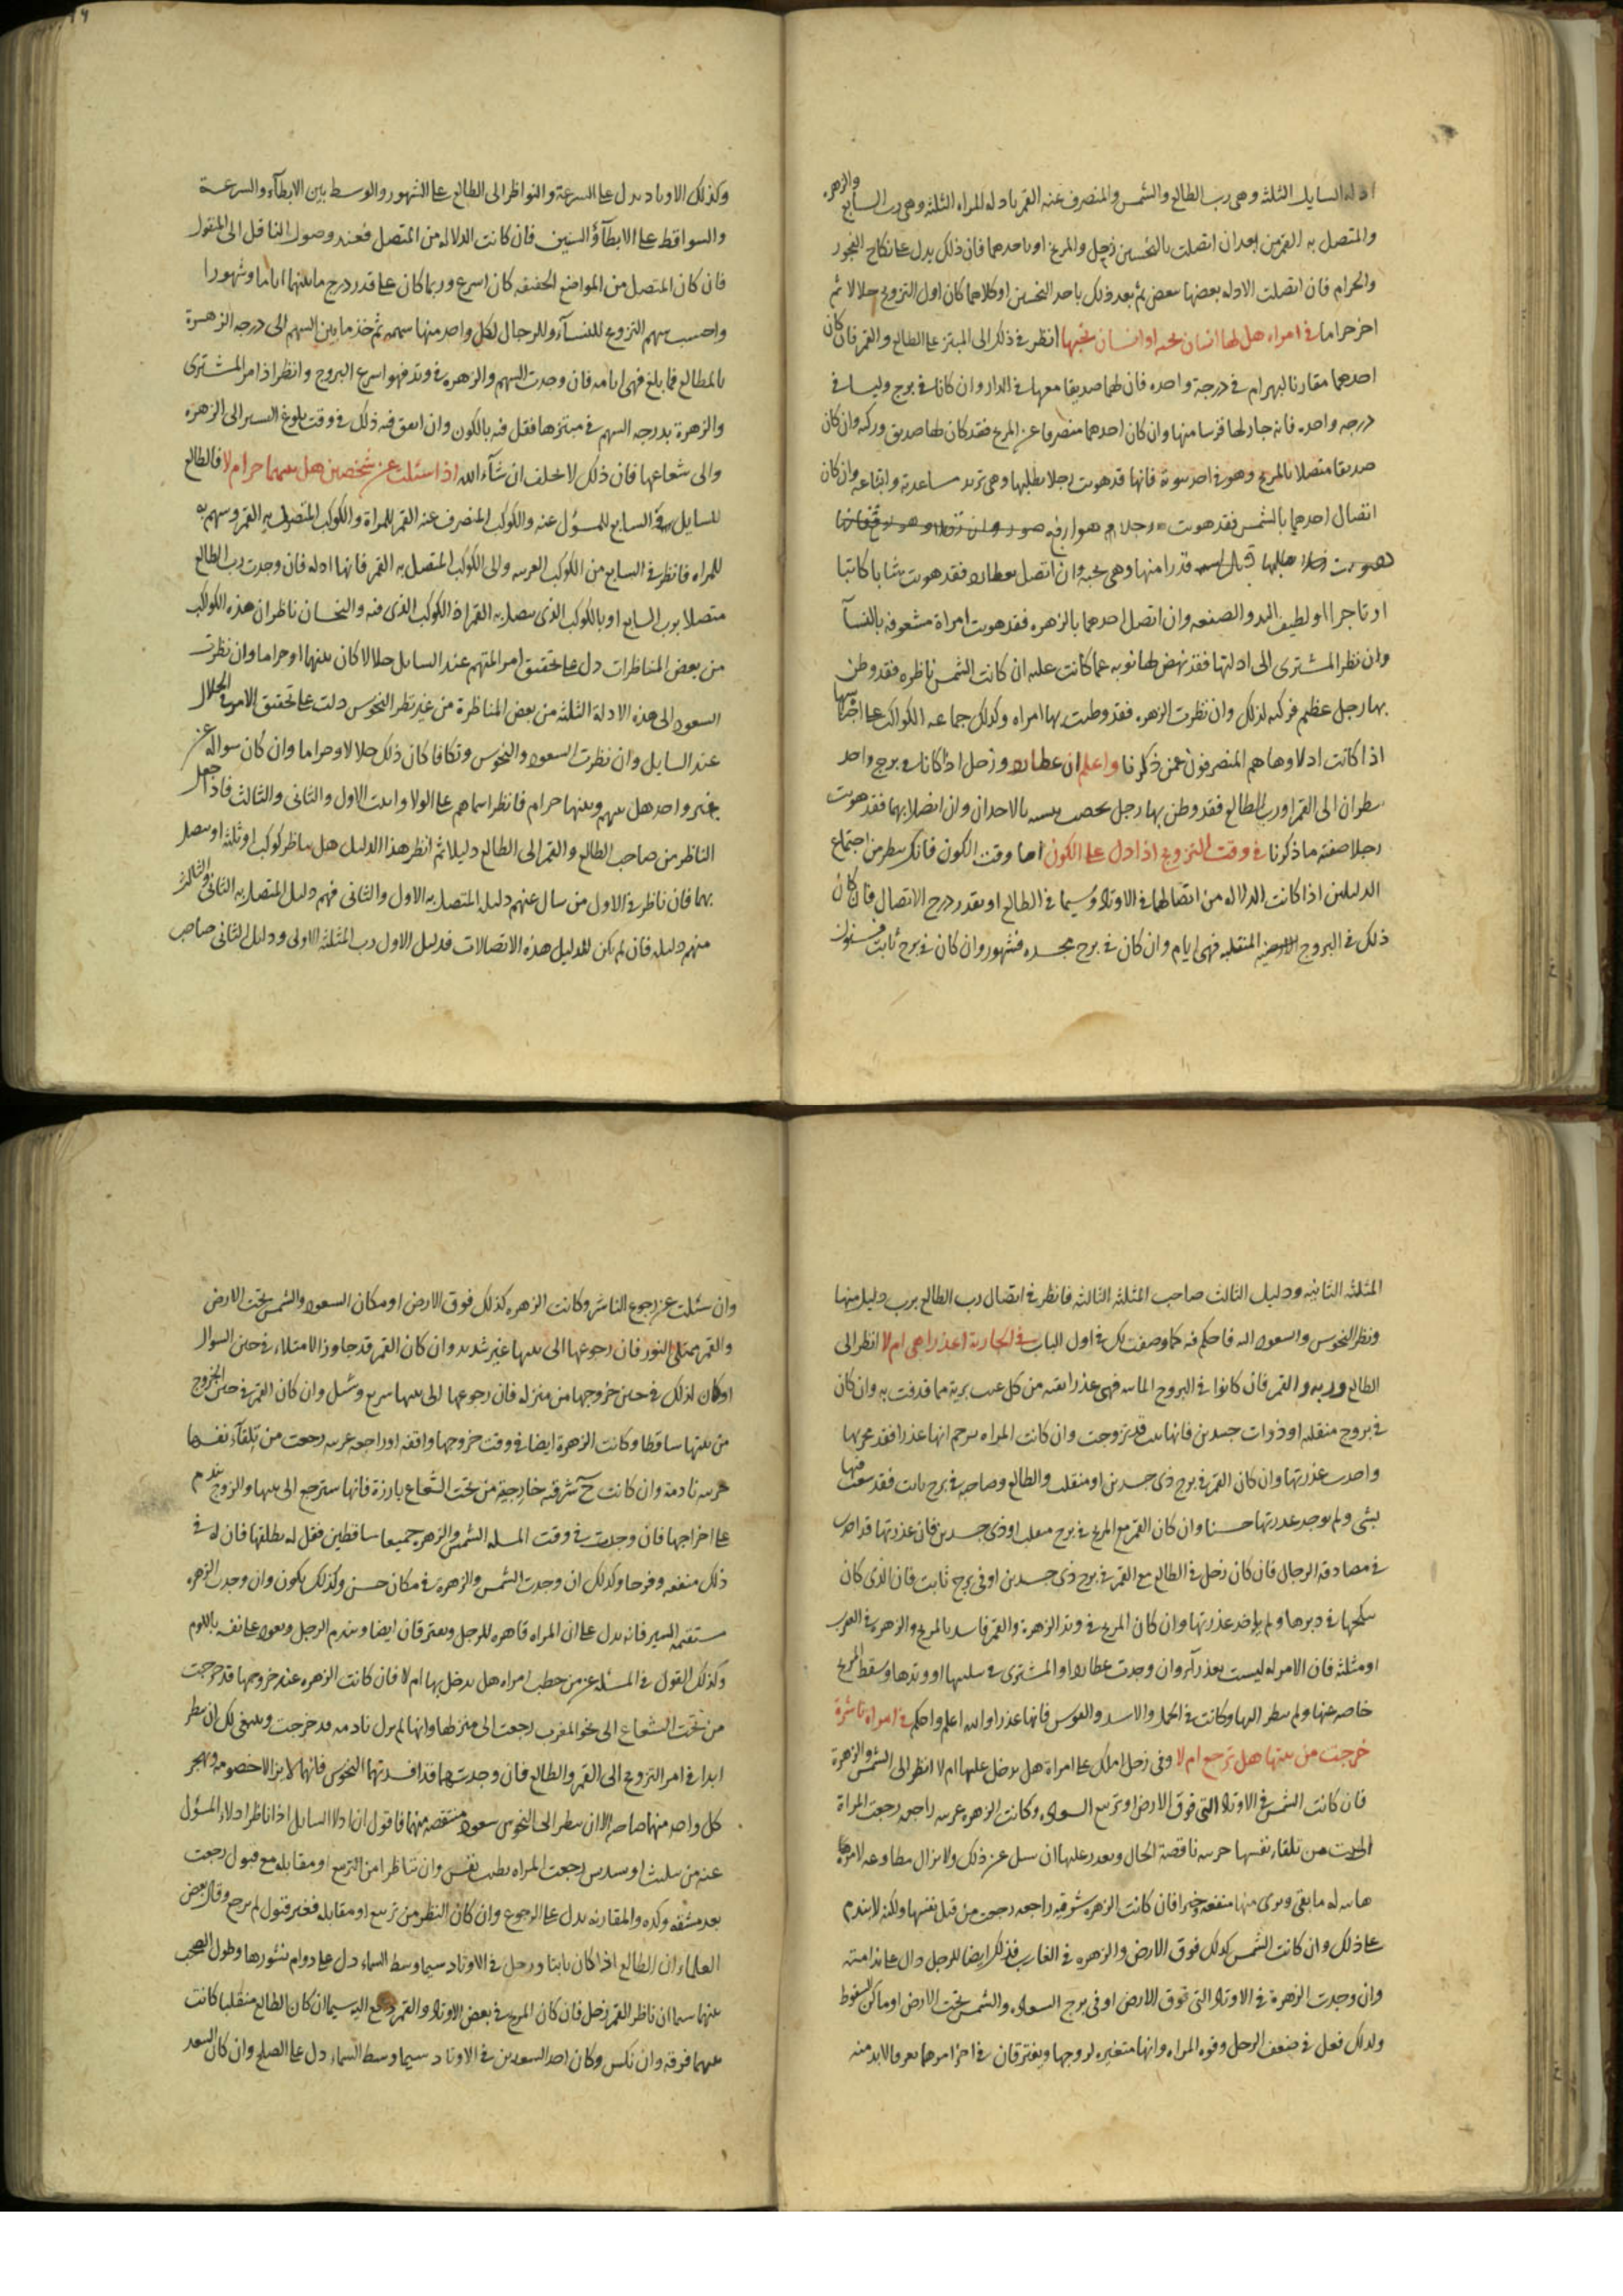 ادله السايل الثلثة وهى رب الطالع والشمس والمنصرف عنه القمر بادله المراه الثلثة وهى رب السابع والزهره
والمتصل به القمر من بعد ان اتصلت بالنحسين زحل والمريخ او باحدهما فان ذلك يدل على نكاح الفجور
والحرام فان اتصلت الادله بعضها ببعض ثم بعد ذلك باحد النحسين او كلاهما كان اول التزويج حلالا ثم
اخر حراما فى امراه هل لها انسان تحبه او انسان يحبها انظر فى ذلك الى المبتز على الطالع والقمر فان كان
احدهما مقارنا لبهرام فى درجة واحده فان لها صديقا معها فى الدار وان كانا فى برج وليسا فى
درجه واحده فانه جار لها قريبا منها وان كان احدهما منصرفا عن المريخ فقد كان لها صديق وتركه وان كان
صديقا متصلا بالمريخ وهو فى احد بيوته فانها قد هويت رجلا يطلبها وهى تريد مساعدته واتباعه وان كان
اتصال احدهما بالشمس فقد هويت رجلا هو ارفع
قدرا منها وهى تحبه وان اتصل بعطارد فقد هويت شابا كاتبا
او تاجرا او لطيف اليد والصنعه وان اتصل احدهما بالزهره فقد هويت امراة مشعوفه بالنسآ
وان نظر المشترى الى ادلتها فقد نهض لها توبه عما كانت عليه ان كانت الشمس ناظره فقد وطن
بها رجل عظيم فركبه لذلك وان نظرت الزهره فقد وطيت بها امراه وكذلك جماعه الكواكب على اجناسها
اذا كانت ادلاوها هم المنصرفون عمن ذكرنا واعلم ان عطارد وزحل اذا كانا فى برج واحد
ينظران الى القمر او رب الطالع فقد وطن بها رجل بالاحدان وان اتصلا بهما فقد هويت
رجلا صفته ما ذكرنا فى وقت التزويج اذا دل على الكون اما وقت الكون فانك تنظر من اجتماع
الدليلين اذا كانت الدلاله من اتصالهما فى الاوتاد وسيما فى الطالع او بقدر درج الاتصال فان كان
ذلك فى البروج المنقلبه فهى ايام وان كان فى برج مجسده فشهور وان كان فى برج ثابت فسنون
وكذلك الاوتاد يدل على السرعة والنواظر الى الطالع على الشهور والوسط بين الابطآء والسرعة
والسواقط على الابطآ والسنين فان كانت الدلاله من المتصل فعند وصول الناقل الى المنقول
فان كان المتصل من المواضع الخفيفه كان اسرع وربما كان على قدر درج ما بينهما اياما وشهورا
واحسب سهم التزويج للنسآء وللرجال لكل واحد منها سهمه ثم خذ ما بين السهم الى درجه الزهرة
بالمطالع فما بلغ فهى ايامه فان وجدت السهم والزهره فى وتد فهو اسرع البروج وانظر اذا مر المشترى
والزهرة بدرجه السهم فى مبتزها فقل فيه بالكون وان اتفق فيه ذلك فى وقت بلوغ السير الى الزهره
والى شعاعها فان ذلك لا يخلف ان شآء الله اذا سئلت عن شخصين هل بينهما حرام لا فالطالع
للسايل والسابع للمسؤل عنه والكوكب المنصرف عنه القمر للمراة والكوكب المتصل به القمر وسهم به
للمراه فانظر فى السابع من الكوكب الغريبه والى الكوكب المتصل به القمر فانها ادله فان وجدت رب الطالع
متصلا برب السابع او بالكوكب الذى يتصل به القمر اذ الكوكب الذى فيه والنحسان ناظران هذه الكواكب
من بعض المناظرات دل على تحقيق امر المتهم عند السايل حلالا كان بينهما او حراما وان نظرت
السعود الى هذه الادلة الثلثه من بعض المناظرة من غير نظر النحوس دلت على تحقيق الامر فى الحلال
عند السايل وان نظرت السعود والنحوس وتكافا كان ذلك حلالا وحراما وان كان سواله عن
غير واحد هل بينهم وبينها حرام فانظر اسماهم على الولا واثبت الاول والثانى والثالث فاذا جعل
الناظر من صاحب الطالع والقمر الى الطالع دليلا ثم انظر هذا الدليل هل يناظر كوكب او ثلثه او يتصل
بهما فان ناظر فى الاول من سال عنهم دليله المتصل به الاول والثانى فهم دليل المتصل به الثانى والثالث
منهم دليله فان لم يكن للدليل هذه الاتصالات فدليل الاول رب المثلثه الاولى ودليل الثانى صاحب
المثلثه الثانيه ودليل الثالث صاحب المثلثه الثالثه فانظر فى اتصال رب الطالع برب دليل منها
ونظر النحوس والسعود اليه فاحكم فيه كما وصفت لك فى اول الباب فى الجارية اعذرا هى ام لا انظر الى
الطالع وربه والقمر فان كانوا فى البروج الثابته فهى عذرا نقيه من كل عيب برية مما قذفت به وان كان
فى بروج منقلبه او ذوات جسدين فانها قد تزوجت وان كانت المراه تزعم انها عذرا فقد
عذرتها وان كان القمر فى برج ذى جسدين او منقلب والطالع وصاحبه فى برج ثابت فقد
بشى ولم يوجد عذرتها حسنا وان كان القمر مع المريخ فى برج منقلب او ذى جسدين فان عذرتها قد
فى مصادقه الرجال فان كان زحل فى الطالع مع القمر فى برج ذى جسدين او فى برج ثابت فان الذى كان
ينكحها فى دبرها ولم ياخذ عذرتها وان كان المريخ فى وتد الزهرة والقمر فاسد بالمريخ والزهره فى العقرب
او مثلثه فان الامراه ليست بعذرآء وان وجدت عطارد او المشترى فى مثلثها او وتدها وسقط المريخ
خاصه عنها ولم ينظر اليها وكانت فى الحمل والاسد والقوس فانها عذرا والله اعلم واحكم فى امراه ناشزة
خرجت من بيتها هل ترجع ام لا وفى رجل املك على امراة هل يدخل عليها ام لا انظر الى الشمس والزهرة
فان كانت الشمس فى الاوتاد التى فوق الارض او تربيع السعود وكانت الزهره غربيه راجعه رجعت المراة
الى بيت من تلقاء نفسها حزينه ناقصة الحال ويعدد عليها ان سل عن ذلك ولا يزال مطاوعه
له ما بقى ويرى منها منفعه وخيرا فان كانت الزهره شرقيه راجعه رجعت من قبل نفسها ولكنه لا يندم
على ذلك وان كانت الشمس كذلك فوق الارض والزهره فى الغارب فذلك ايضا للرجل دال على ندامته
وان وجدت الزهرة فى الاوتاد التى فوق الارض او فى برج السعود والشمس تحت الارض او ماكن السقوط
ولذلك فعل فى ضعف الرجل وقوه المراه وانها متغيره لزوجها ويفترقان فى اخر امرهما تعرفا لابد منه
وان سئلت عن رجوع الناشز وكانت الزهره كذلك فوق الارض او مكان السعود والشمس تحت الارض
والقمر ممتلى النور فان رجوعها الى بيتها غير شديد وان كان القمر قد جاوز الامتلاء فى حين السوال
او كان لذلك فى حين خروجها من منزله فان رجوعها الى بيتها سريع وسهل وان كان القمر فى حين الخروج
من بيتها ساقطا وكانت الزهرة ايضا فى وقت خروجها واقفه او راجعه غربيه رجعت من تلقآء نفسها
حزينه نادمة وان كانت ح شرقيه خارجية من تحت الشعاع بارزة فانها سترجع الى بيتها والزوج يندم
على اخراجها فان وجدت فى وقت المسله الشمس والزهره جميعا ساقطين فقل له يطلقها فان له فى
ذلك منفعه وفرحا وكذلك ان وجدت الشمس والزهره فى مكان حسن وكذلك يكون وان وجدت الزهره
مستقيمه السير فانه يدل على ان المراه قاهره للرجل ويفترقان ايضا ويندم الرجل ويعود على نفسه باللوم
وكذلك القول فى المسئله عن من خطب امراه هل يدخل بها ام لا فان كانت الزهره عند خروجها قد خرجت
من تحت الشعاع الى نحو المغرب رجعت الى منزلها وانها لم تزل نادمه قد خرجت وينبغى لك ان تنظر
ابدا فى امر التزويج الى القمر والطالع فان وجدتهما قد افسدتهما النحوس فانهما لا يزالا خصومه ويهجر
كل واحد منهما صاحبه الا ان ينظر الى النحوس سعود منتقصه منهما فاقول ان ادلا السايل اذا ناظر ادلاء المسؤل
عنه من تثليث او تسديس رجعت المراه بطيب نفس وان تناظرا من التربيع او مقابله مع قبول رجعت
بعد مشقه وكده والمقارنه يدل على الرجوع وان كان النظر من تربيع او مقابله فغير قبول لم يرجع وقال بعض
العلماء ان الطالع اذا كان ثابتا وزحل فى الاوتاد سيما وسط السماء دل على دوام نشوزها وطول الصخب
بينهما سيما ان ناظر القمر زحل فان كان المريخ فى بعض الاوتاد والقمر دفع اليه سيما ان كان الطالع منقلبا كانت
بينهما فرقه وان نكس وكان احد السعدين فى الاوتاد سيما وسط السماء دل على الصلح وان كان السعد